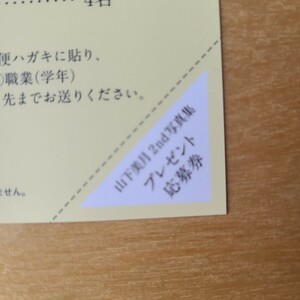 4名
便ハガキに貼り、
職業(学年)
先までお送りください。
ません。
山下美月2nd写真集
プレゼント
応募券